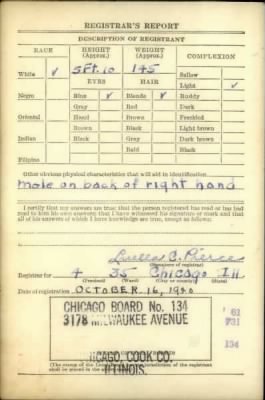 REGISTRAR'S REPORT
DESCRIPTION OF REGISTRANT
RACE HEIGHT (Approx.) WEIGHT (Approx.) COMPLEXION
White ✓ 5 Ft. 10 145 Sallow
EYES HAIR Light ✓
Negro Blue ✓ Blonde ✓ Ruddy
Gray Red Dark
Oriental Hazel Brown Freckled
Brown Black Light brown
Indian Black Gray Dark brown
Bald Black
Filipino
Other obvious physical characteristics that will aid in identification
mole on back of right hand
I certify that my answers are true; that the person registered has read or has had
read to him his own answers; that I have witnessed his signature or mark and that
all of his answers of which I have knowledge are true, except as follows:
C. Pierce
(Signature of registrar)
Registrar for 4 35 Chicago Ill
(Precinct) (Ward) (City or county) (State)
Date of registration OCTOBER 16, 1940
CHICAGO BOARD No. 134
3178 MILWAUKEE AVENUE
CHICAGO, COOK CO.
ILLINOIS.
134